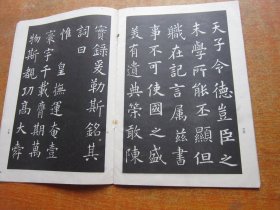 天子令德豈臣之
末學所能丕顯但
職在記言属茲書
事不可使國之盛
美有遺典策敢陳
實錄爰勒斯銘其
詞曰
惟 皇撫運奄壹
寰宇千載膺期萬
物斯覩功高大舜